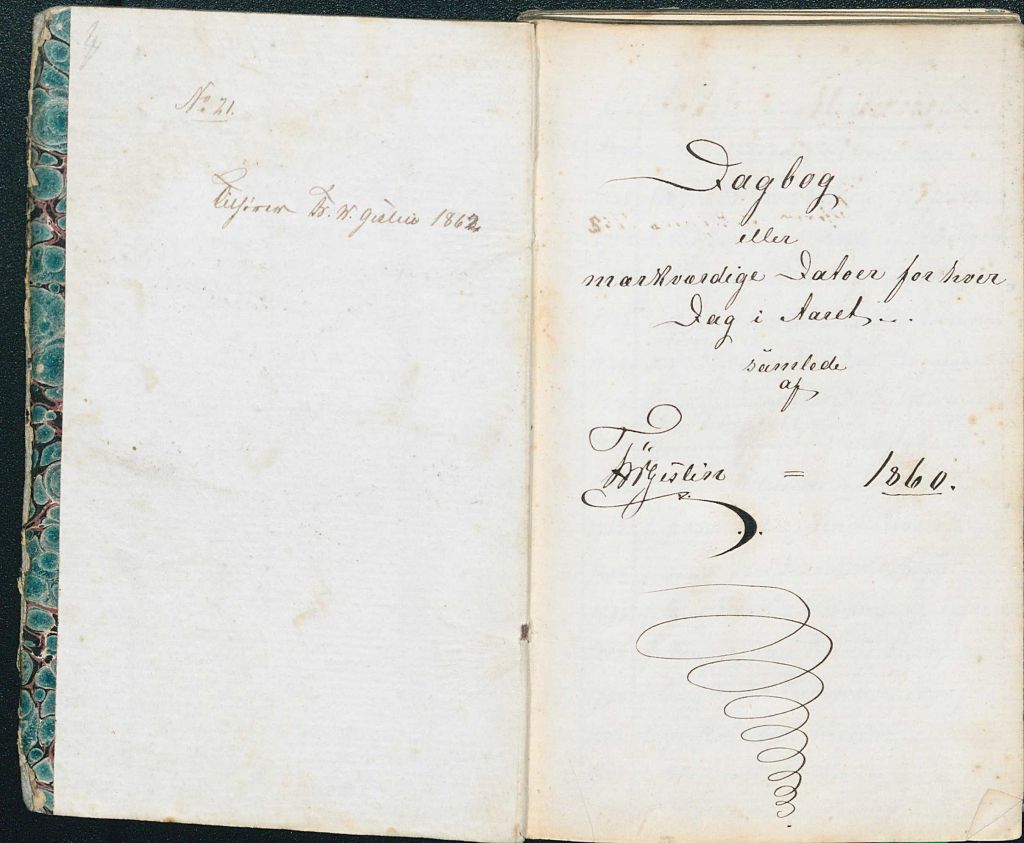 No 21.
Tilhører Fr. W. Gislin 1862.
Dagbog
eller
markværdige Datoer for hver
Dag i Aaret...
samlede
af
FrWGislin = 1860.